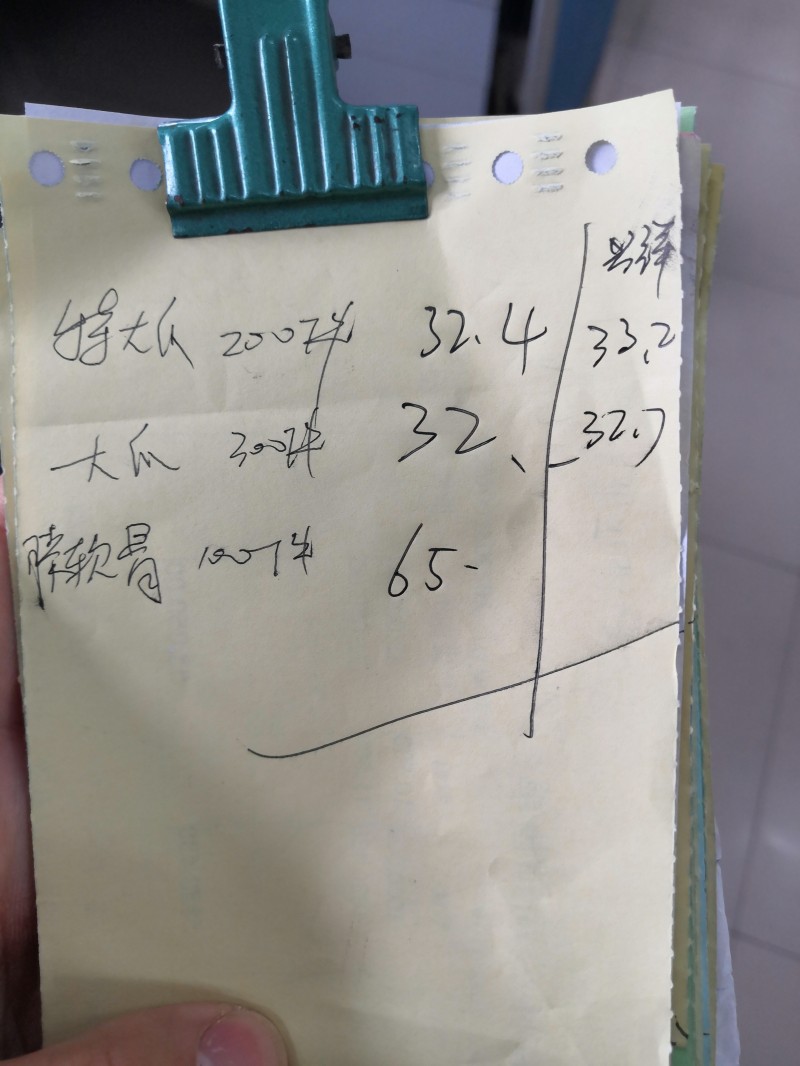 兴祥
特大爪 200件 32.4 33.2
大爪 300件 32、 32.7
脆软骨 100件 65-